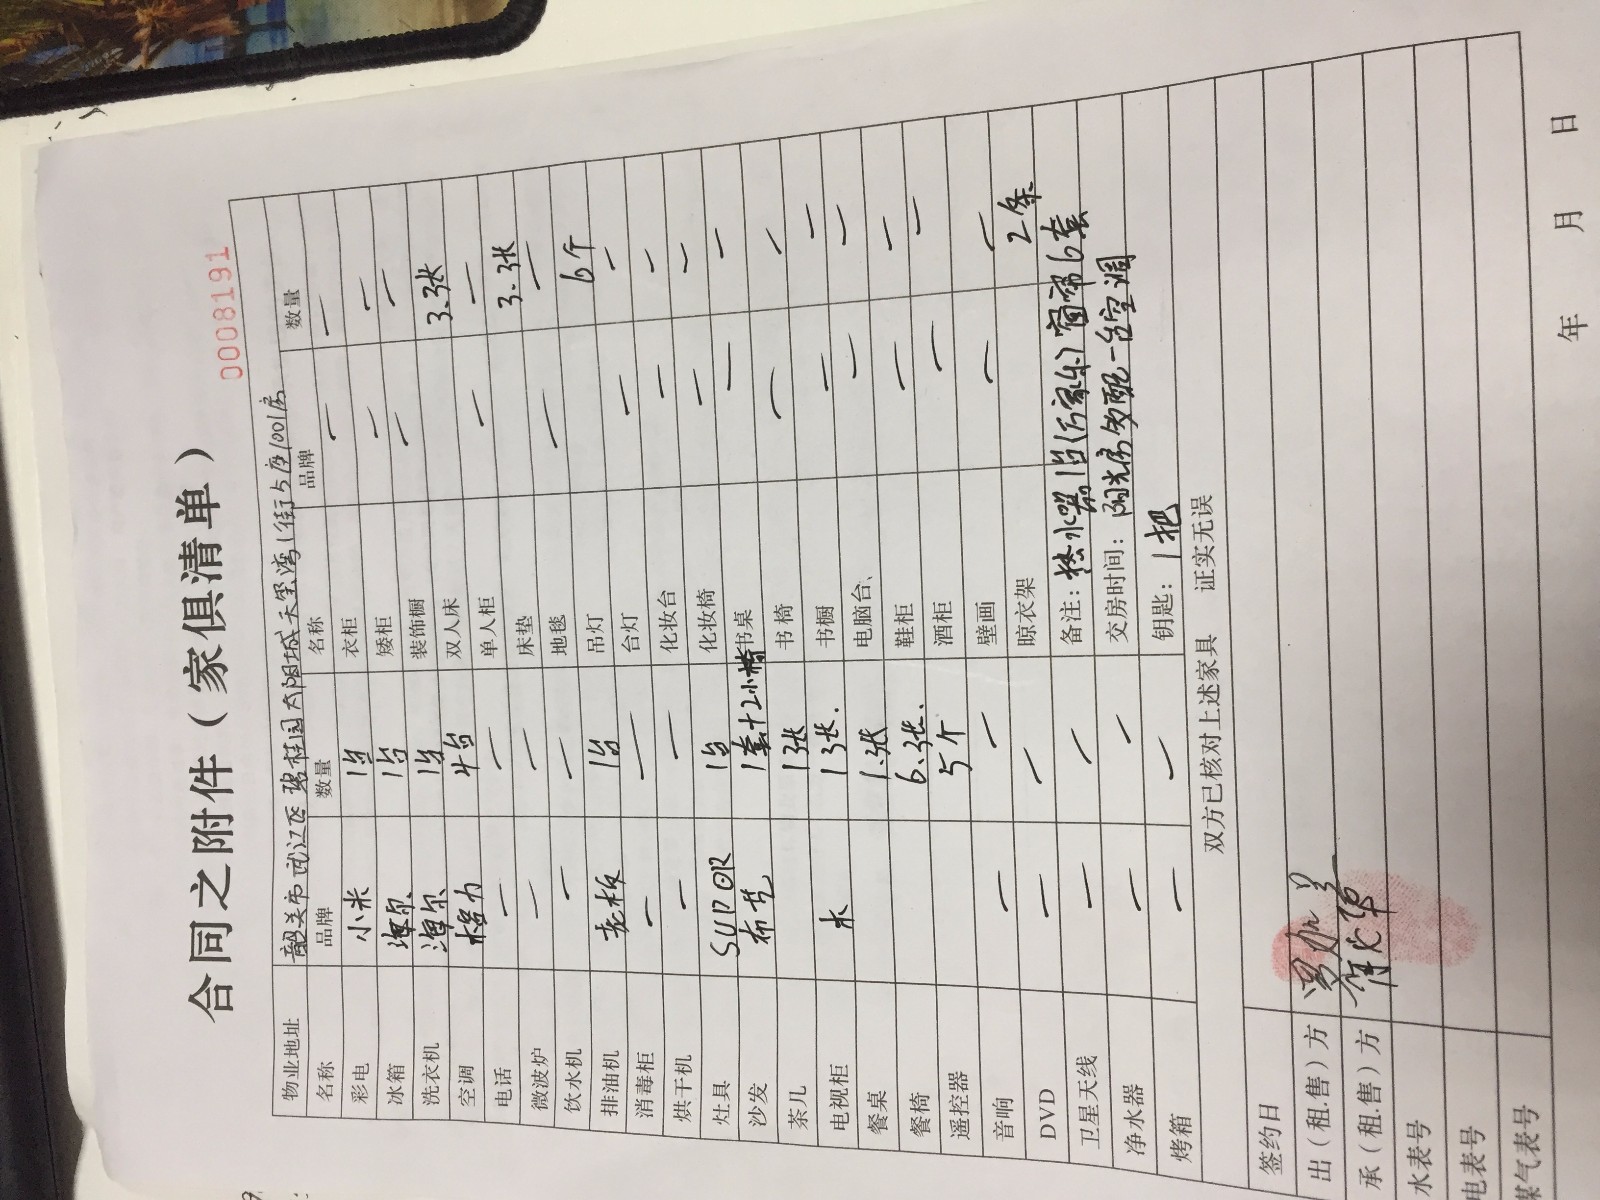 合同之附件（家俱清单）
0008191
物业地址 韶关市武江区碧桂园太阳城天玺湾1街5座1001房
名称 品牌 数量 名称 品牌 数量
彩电 小米 1台 衣柜 — —
冰箱 海尔 1台 矮柜 — —
洗衣机 海尔 1台 装饰橱 — —
空调 格力 4台 双人床 3.张
电话 — — 单人柜 — —
微波炉 — — 床垫 3.张
饮水机 — — 地毯 — —
排油机 老板 1台 吊灯 6个
消毒柜 — — 台灯 — —
烘干机 — — 化妆台 — —
灶具 SUPOR 1台 化妆椅 — —
沙发 布艺 1套+2小椅 书桌 — —
茶几 1张 书椅 — —
电视柜 木 1张. 书橱 — —
餐桌 1.张 电脑台、 — —
餐椅 6.张. 鞋柜 — —
遥控器 5个 酒柜 — —
音响 — — 壁画 — —
DVD — — 晾衣架 2条
卫星天线 — — 备注：热水器1台(万家乐) 窗帘6套
净水器 — — 交房时间：阳光房多配一台空调
烤箱 — — 钥匙：1把
双方已核对上述家具 证实无误
签约日
出（租.售）方
承（租.售）方
水表号
电表号
煤气表号
年 月 日